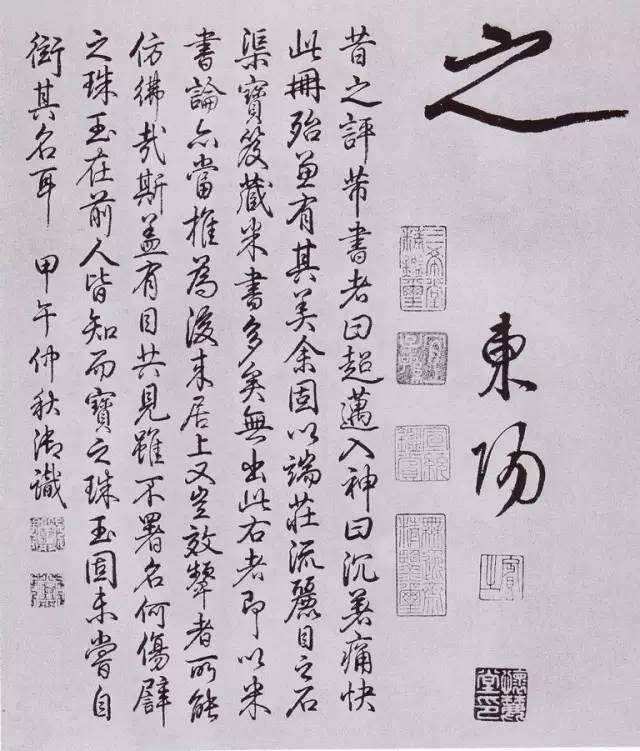 之
東陽
賓之
懷麓堂印
三希堂精鑑璽
宜子孫
宣統鑑賞
無逸齋精鑑璽
昔之評芾書者曰超邁入神曰沉著痛快
此冊殆兼有其美余固以端莊流麗目之石
渠寶笈藏米書多矣無出此右者即以米
書論亦當推為後来居上又豈效顰者所能
仿彿哉斯蓋有目共見雖不署名何傷譬
之珠玉在前人皆知而寶之珠玉固未嘗自
衒其名耳 甲午仲秋御識